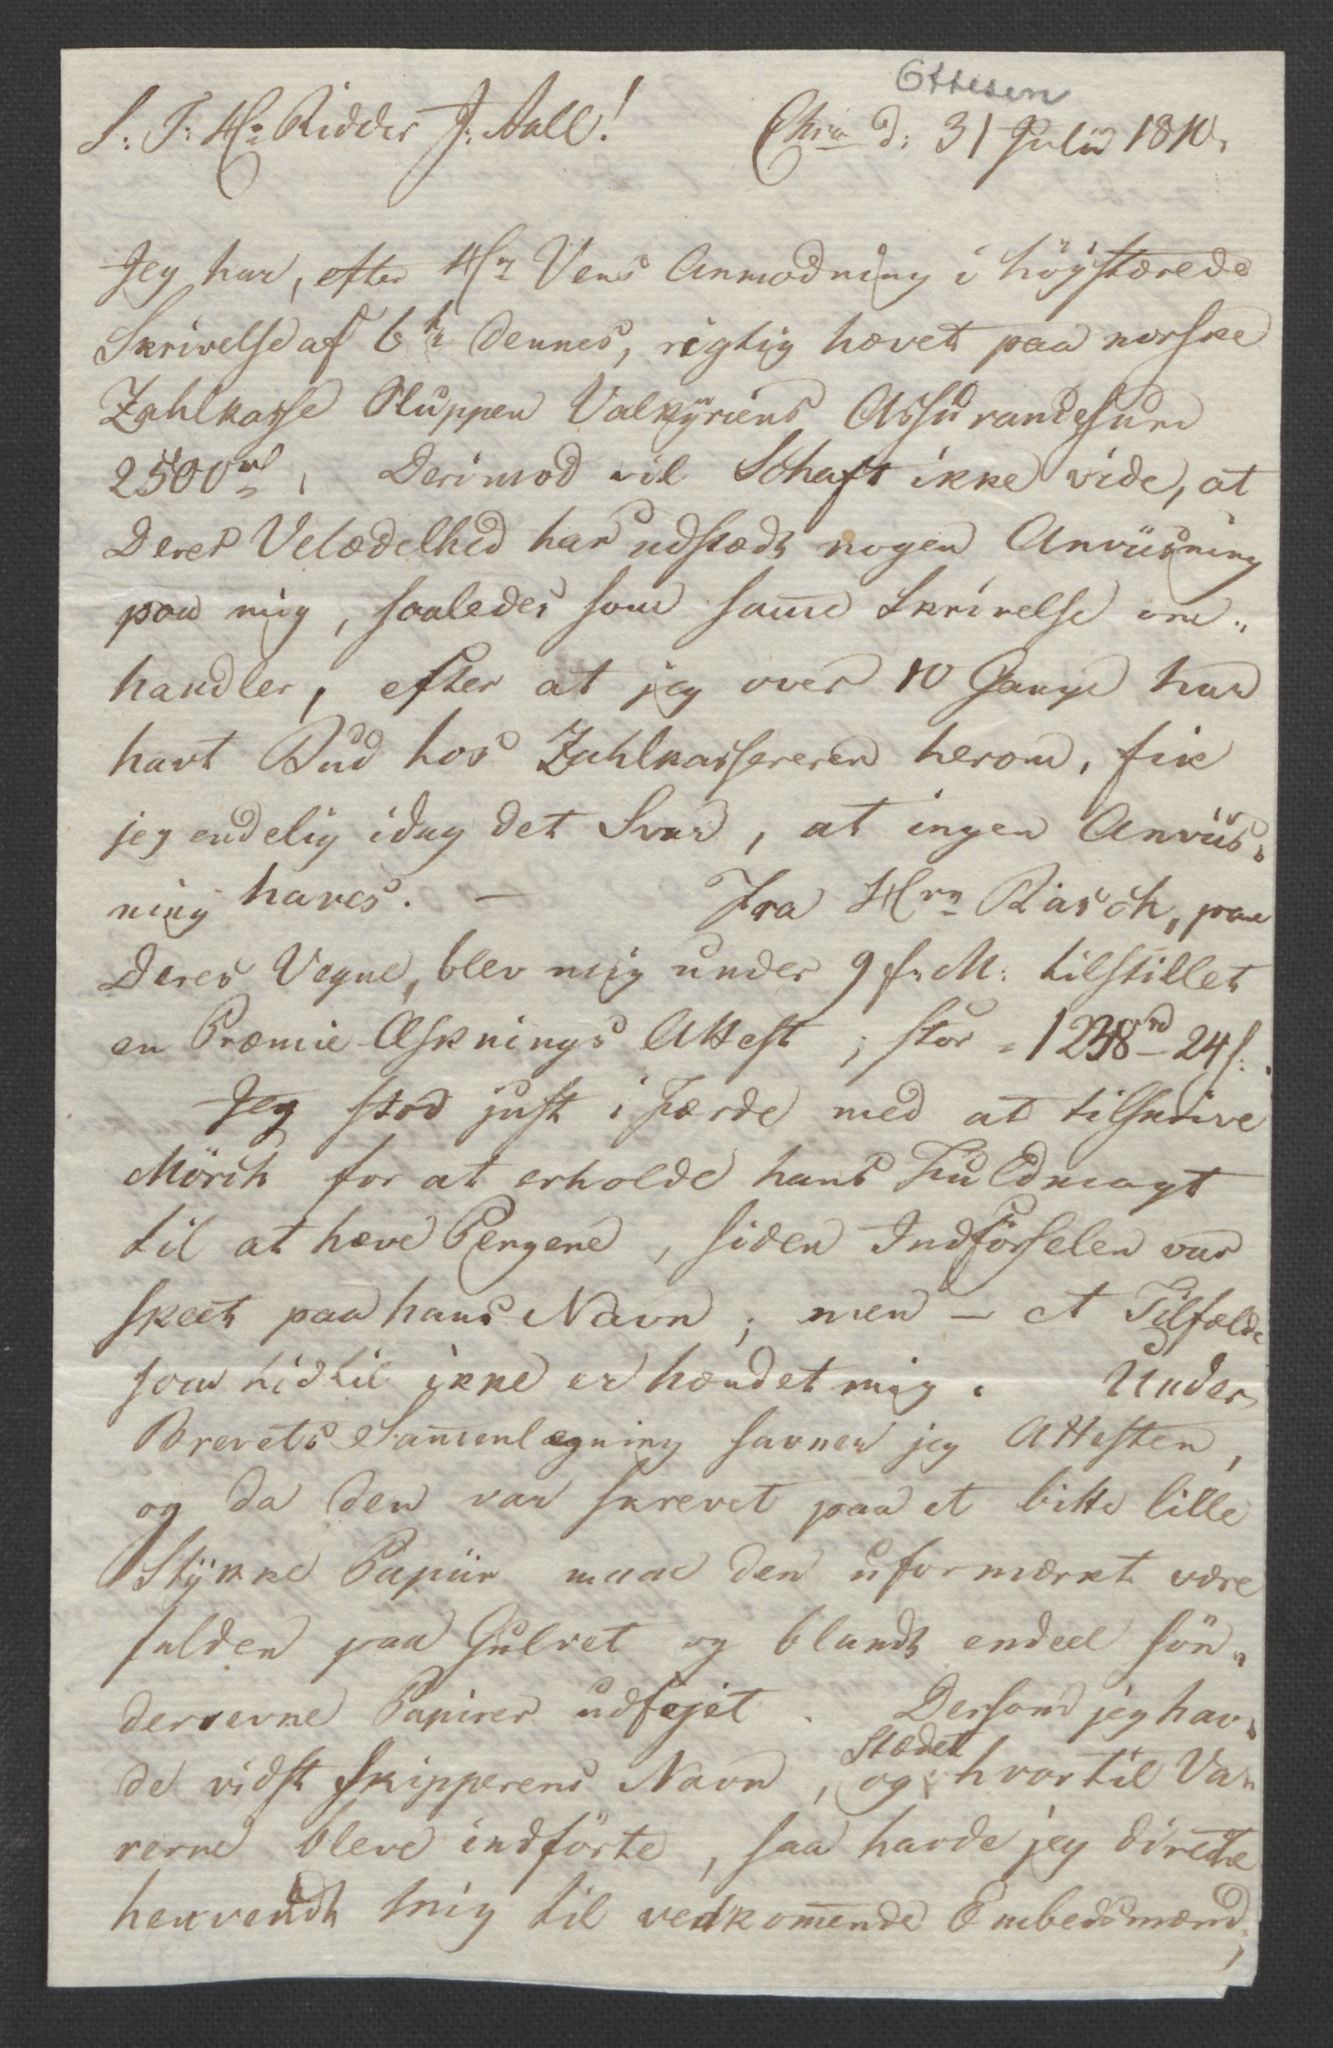 Ottesen
S: T: Hr Ridder J: Aall! Chra d: 31 Julii 1810.
Jeg har, efter Hr Vens Anmodning i höjstærede
Skrivelse af 6te dennes, rigtig hævet paa norske
Zahlkasse Sluppen Valkyriens Assurancesum
2500 rd. Derimod vil Schaft ikke vide, at
Deres Velædelhed har udstædt nogen Anviisning
paa mig, saaledes som sam̅e Skrivelse om„
handler, efter at jeg over 10 Gange har
havt Bud hos Zahlkassereren herom, fik
jeg endelig idag det Svar, at ingen Anviis„
ning haves. — Fra Hrn Rasch, paa
Deres Vegne, blev mig under 9 f. M: tilstillet
en Præmie Æsknings Attest, stor 1238 rd 24 s.
Jeg stod just i Færde med at tilskrive
Mörch for at erholde hans Fuldmagt
til at hæve Pengene, siden Indförselen var
skeet paa hans Navn; men — et Tilfælde
som hidtil ikke er hændet mig. Under
Brevets Sam̅enlægning savner jeg Attesten,
og da den var skrevet paa et bitte lille
Stykke Papiir maae den uformærkt være
falden paa Gulvet og blandt endeel sön„
derrevne Papirer udfejet. Dersom jeg hav„
de vidst Skipperens Navn, og Stædet hvortil Va„
rerne bleve indförte, saa havde jeg directe
henvendt mig til vedkom̅ende Embedsmænd;